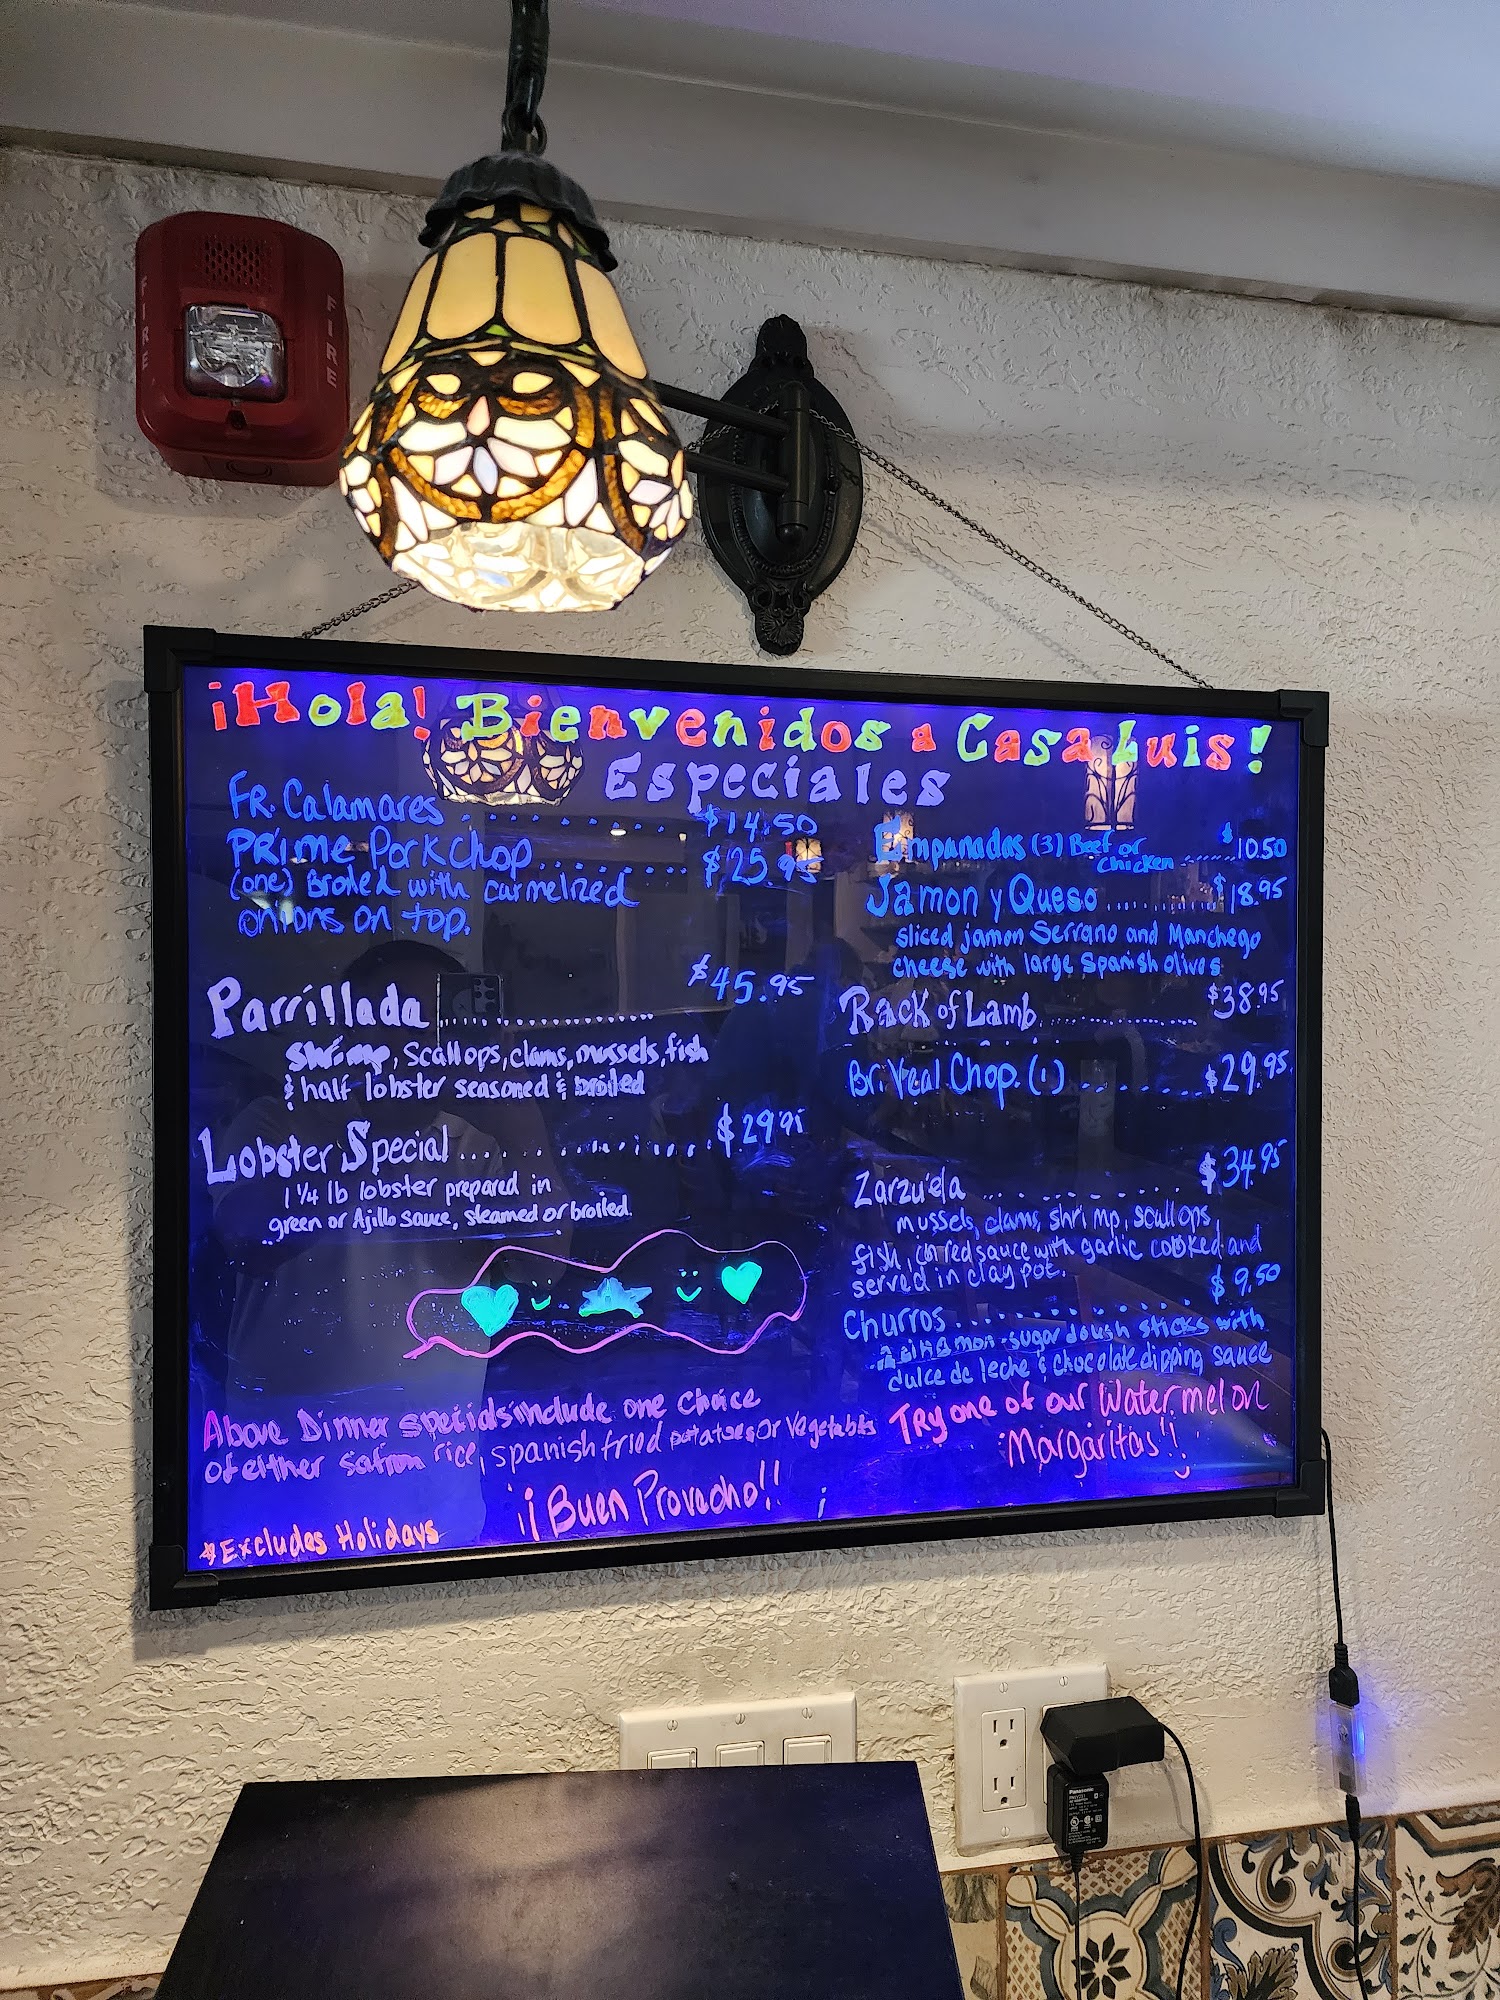 FIRE
FIRE
¡Hola! Bienvenidos a Casa Luis!
Especiales
FR. Calamares ........ $14.50
PRime Pork Chop......... $25.95
(one) Broiled with carmelized
onions on top.
Parrillada ................... $45.95
shrimp, scallops, clams, mussels, fish
& half lobster seasoned & broiled
Lobster Special ............... $29.95
1 1/4 lb lobster prepared in
green or Ajillo sauce, steamed or broiled.
Above Dinner specials include one choice
of either safron rice, spanish fried potatoes or vegetables
¡¡Buen Provecho!!
*Excludes Holidays
Empanadas (3) Beef or
chicken ...... $10.50
Jamon y Queso ........... $18.95
sliced jamon Serrano and Manchego
cheese with large Spanish olives
Rack of Lamb................ $38.95
Br. Veal Chop. (1) ........ $29.95
Zarzuela ........... $34.95
mussels, clams, shrimp, scallops,
fish, in red sauce with garlic cooked and
served in clay pot.
Churros ............. $9.50
cinnamon-sugar dough sticks with
dulce de leche & chocolate dipping sauce
Try one of our Watermelon
Margaritas!!
Panasonic